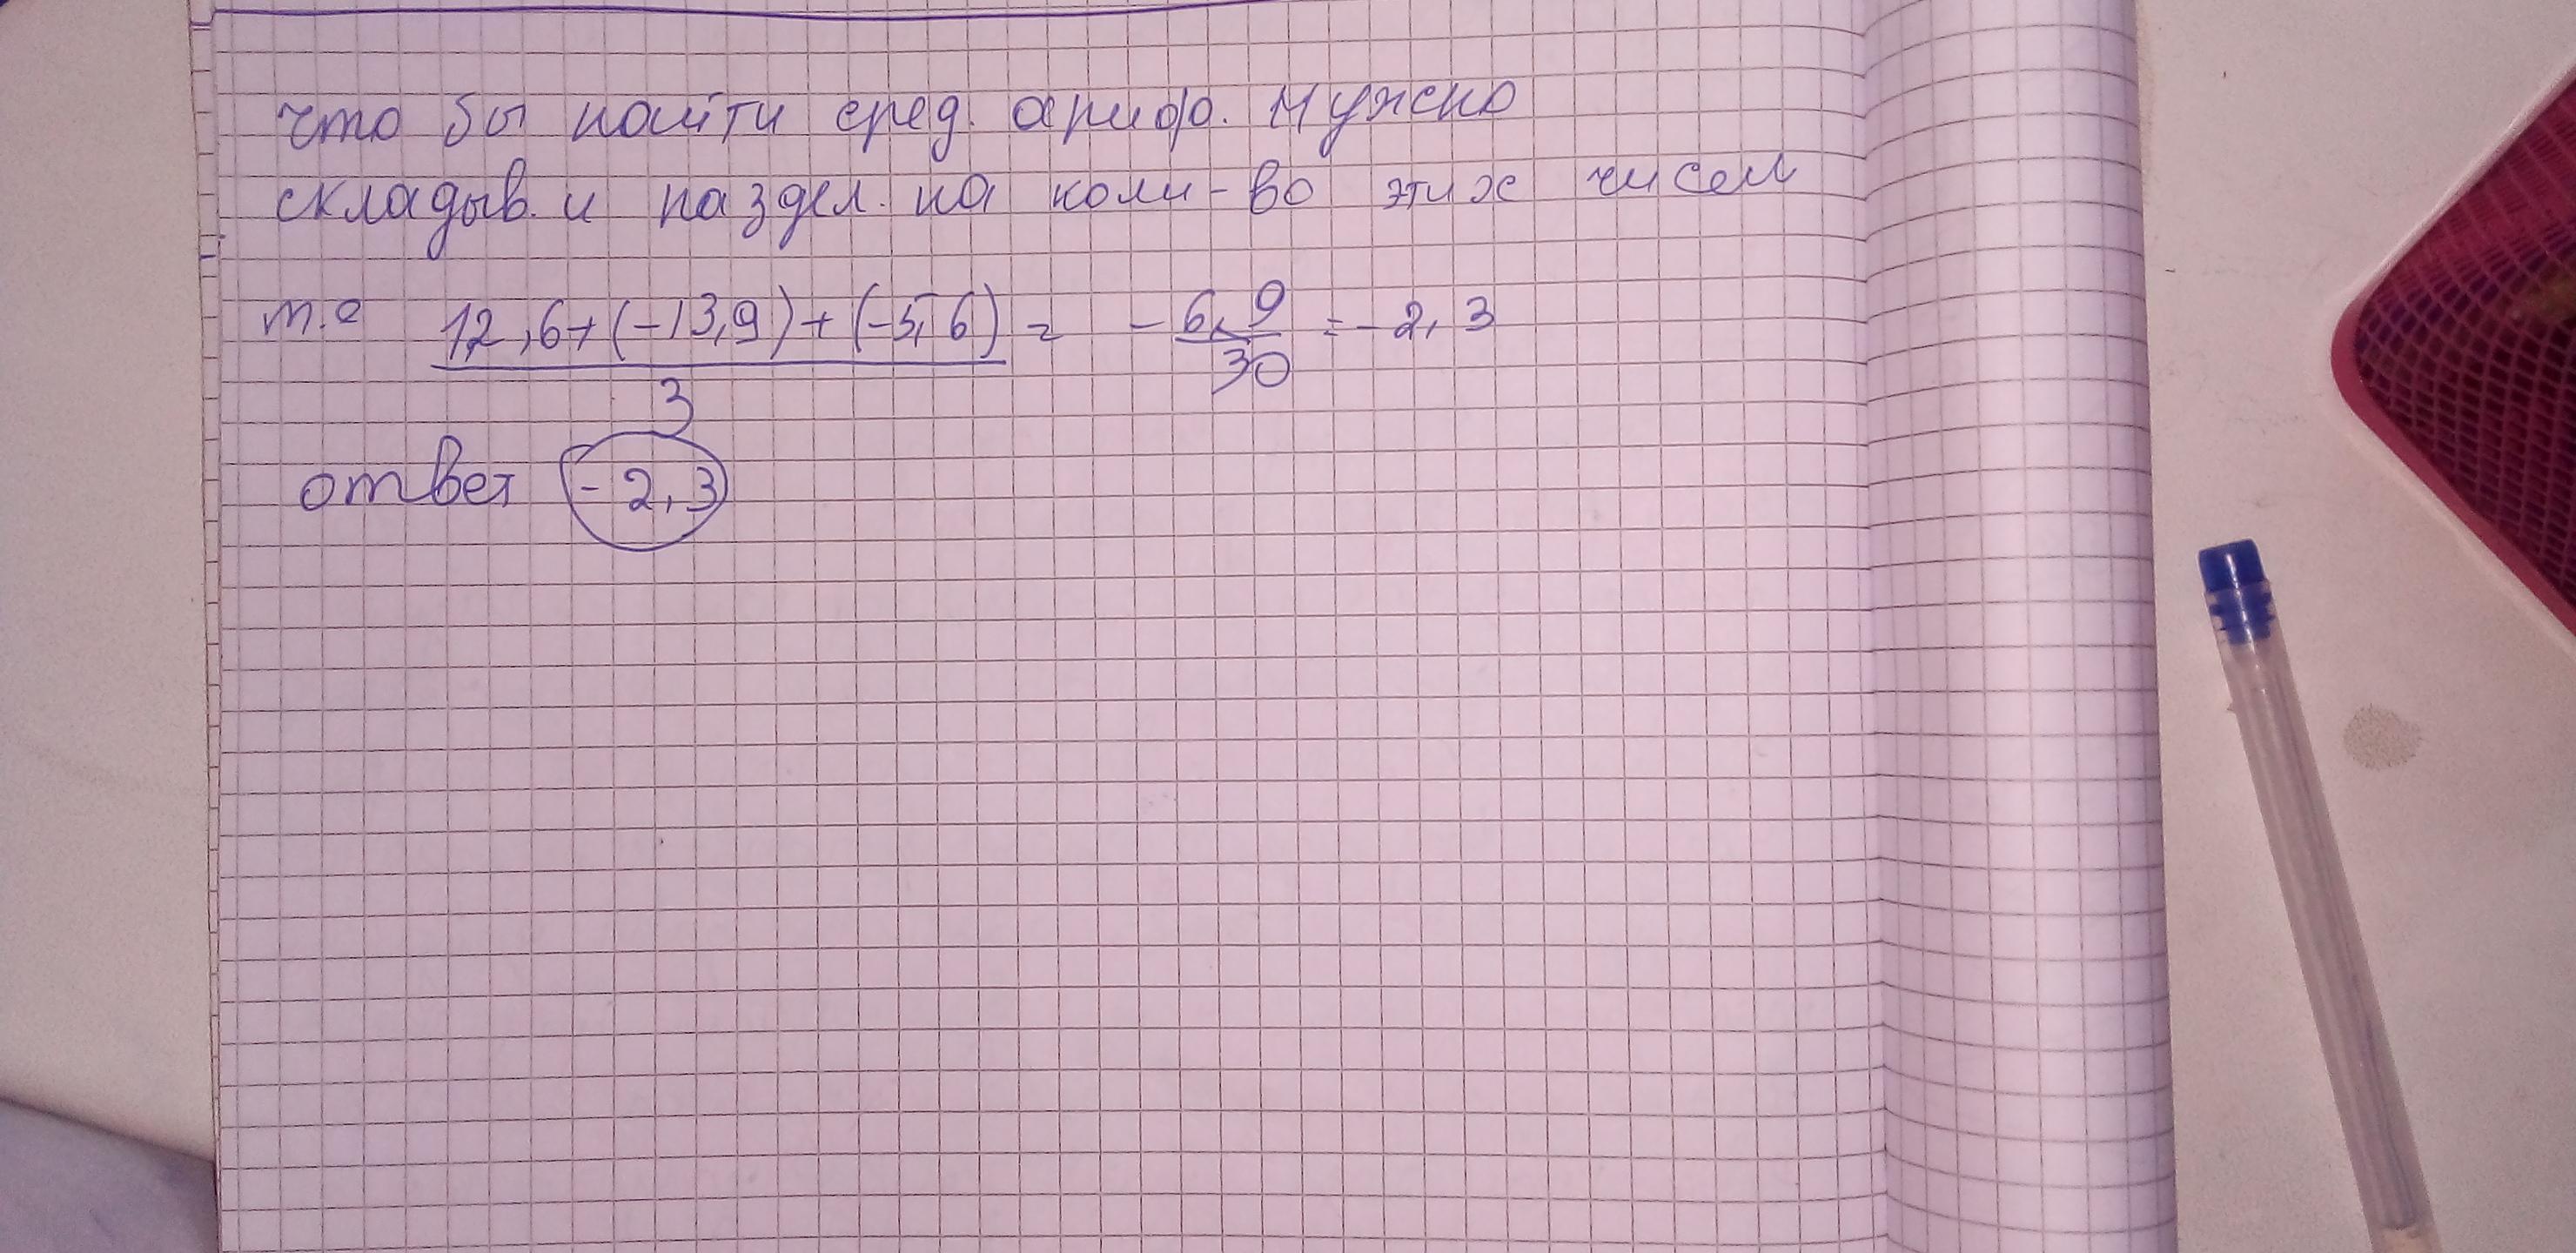 что бы найти сред. ариф. Нужно
складыв. и раздел. на коли-во этих чисел
т.е 12,6+(-13,9)+(-5,6) / 3 = - 6,9 / 30 = - 2,3
ответ - 2,3